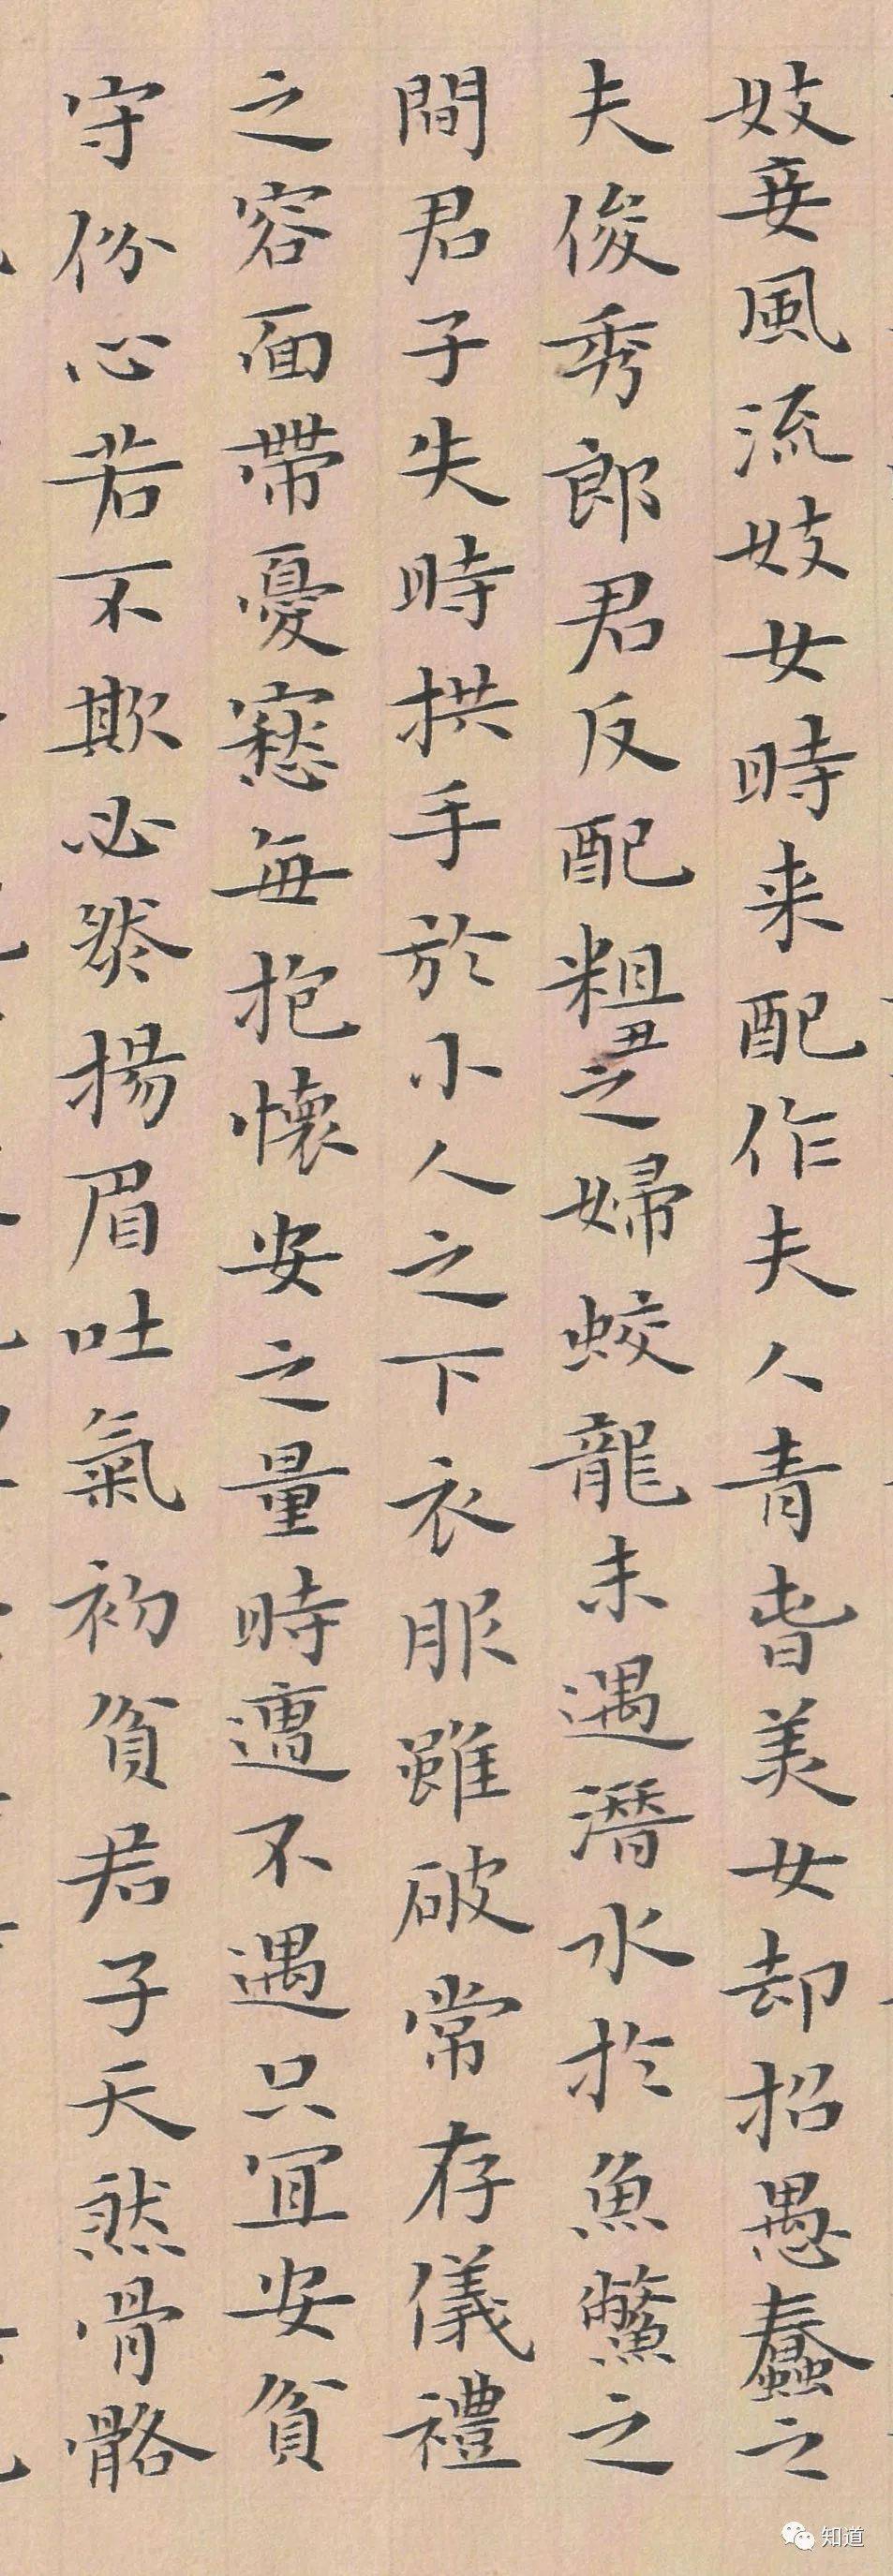 妓妾風流妓女時来配作夫人青春美女却招愚蠢之
夫俊秀郎君反配粗丑之婦蛟龍未遇潛水於魚鱉之
間君子失時拱手於小人之下衣服雖破常存儀禮
之容面帶憂愁每抱懷安之量時遭不遇只宜安貧
守份心若不欺必然揚眉吐氣初貧君子天然骨骼
知道